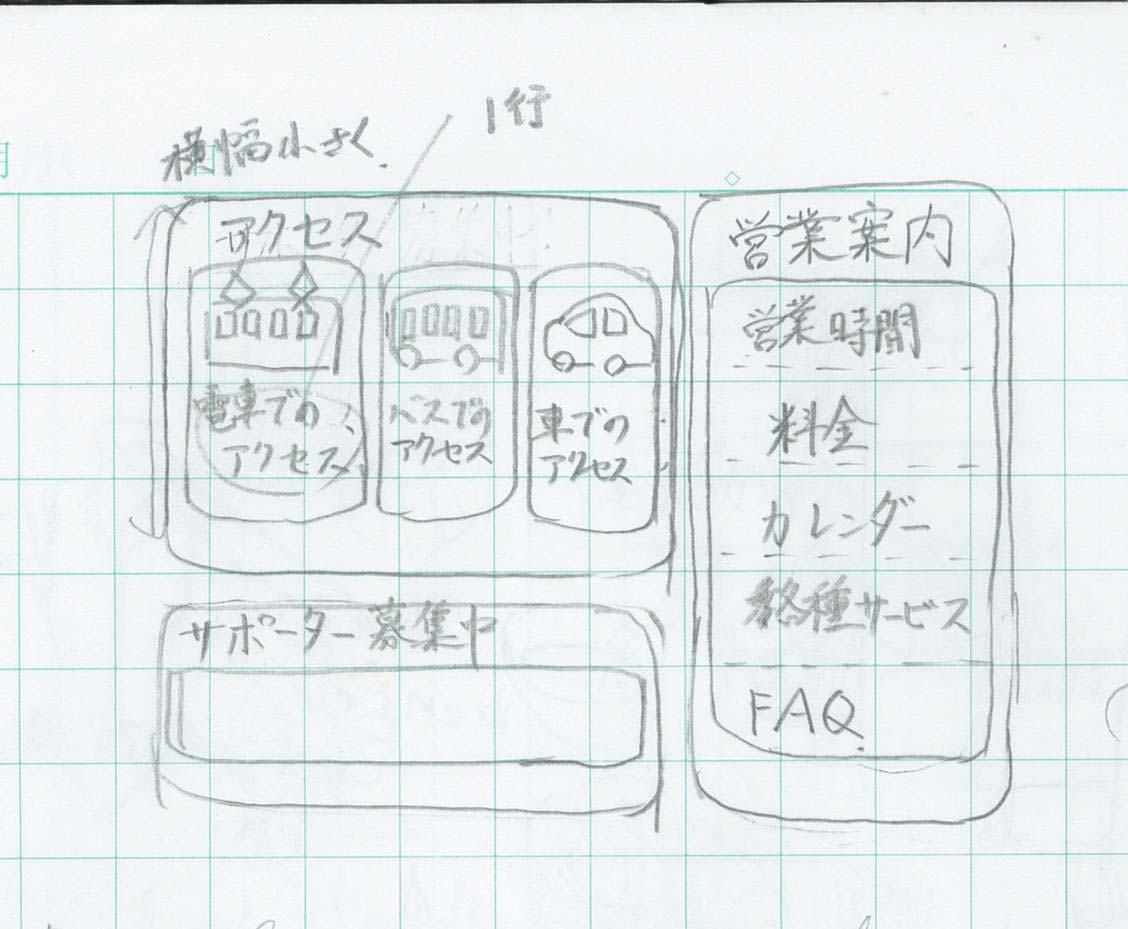 1行
横幅小さく
アクセス
電車での
アクセス
バスでの
アクセス
車での
アクセス
サポーター募集中
営業案内
営業時間
料金
カレンダー
各種サービス
FAQ